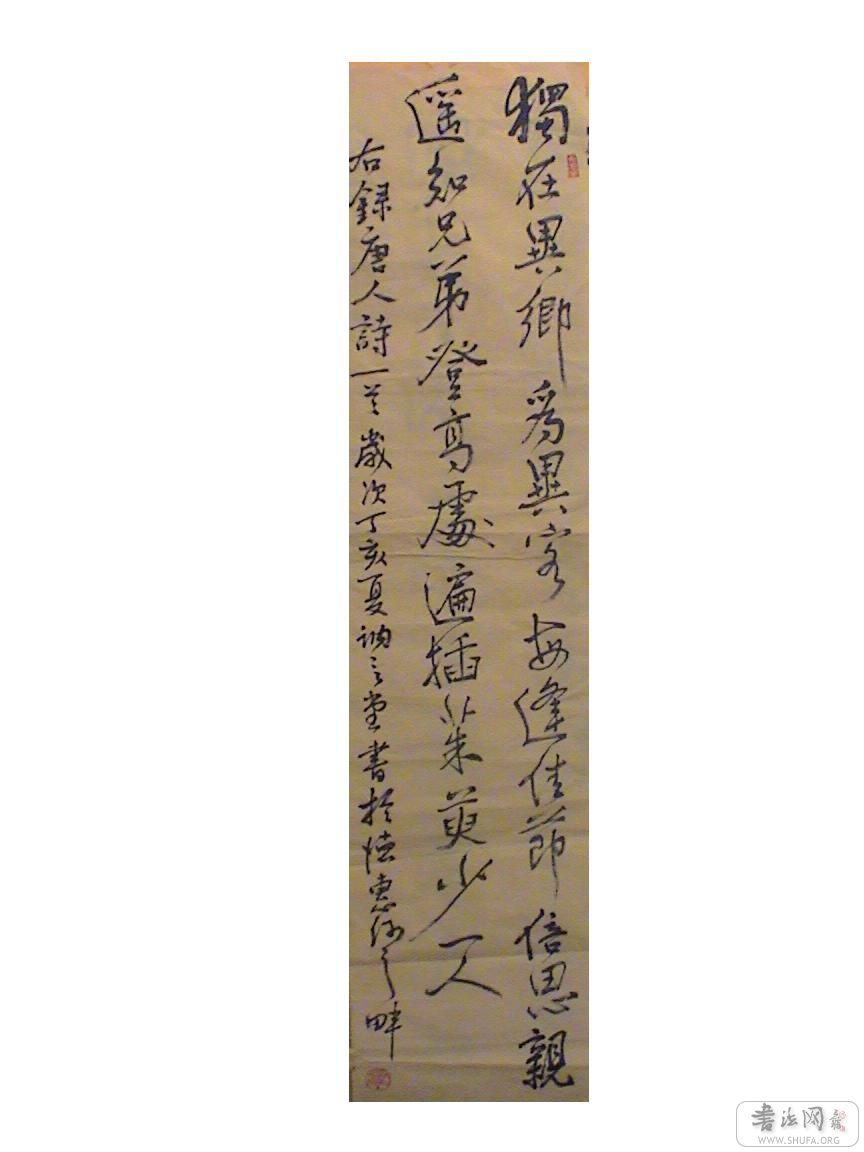 獨在異鄉爲異客每逢佳節倍思親
遥知兄弟登高處遍插茱萸少一人
右錄唐人詩一首歲次丁亥夏訥言堂書於德惠河之畔
書法网
WWW.SHUFA.ORG